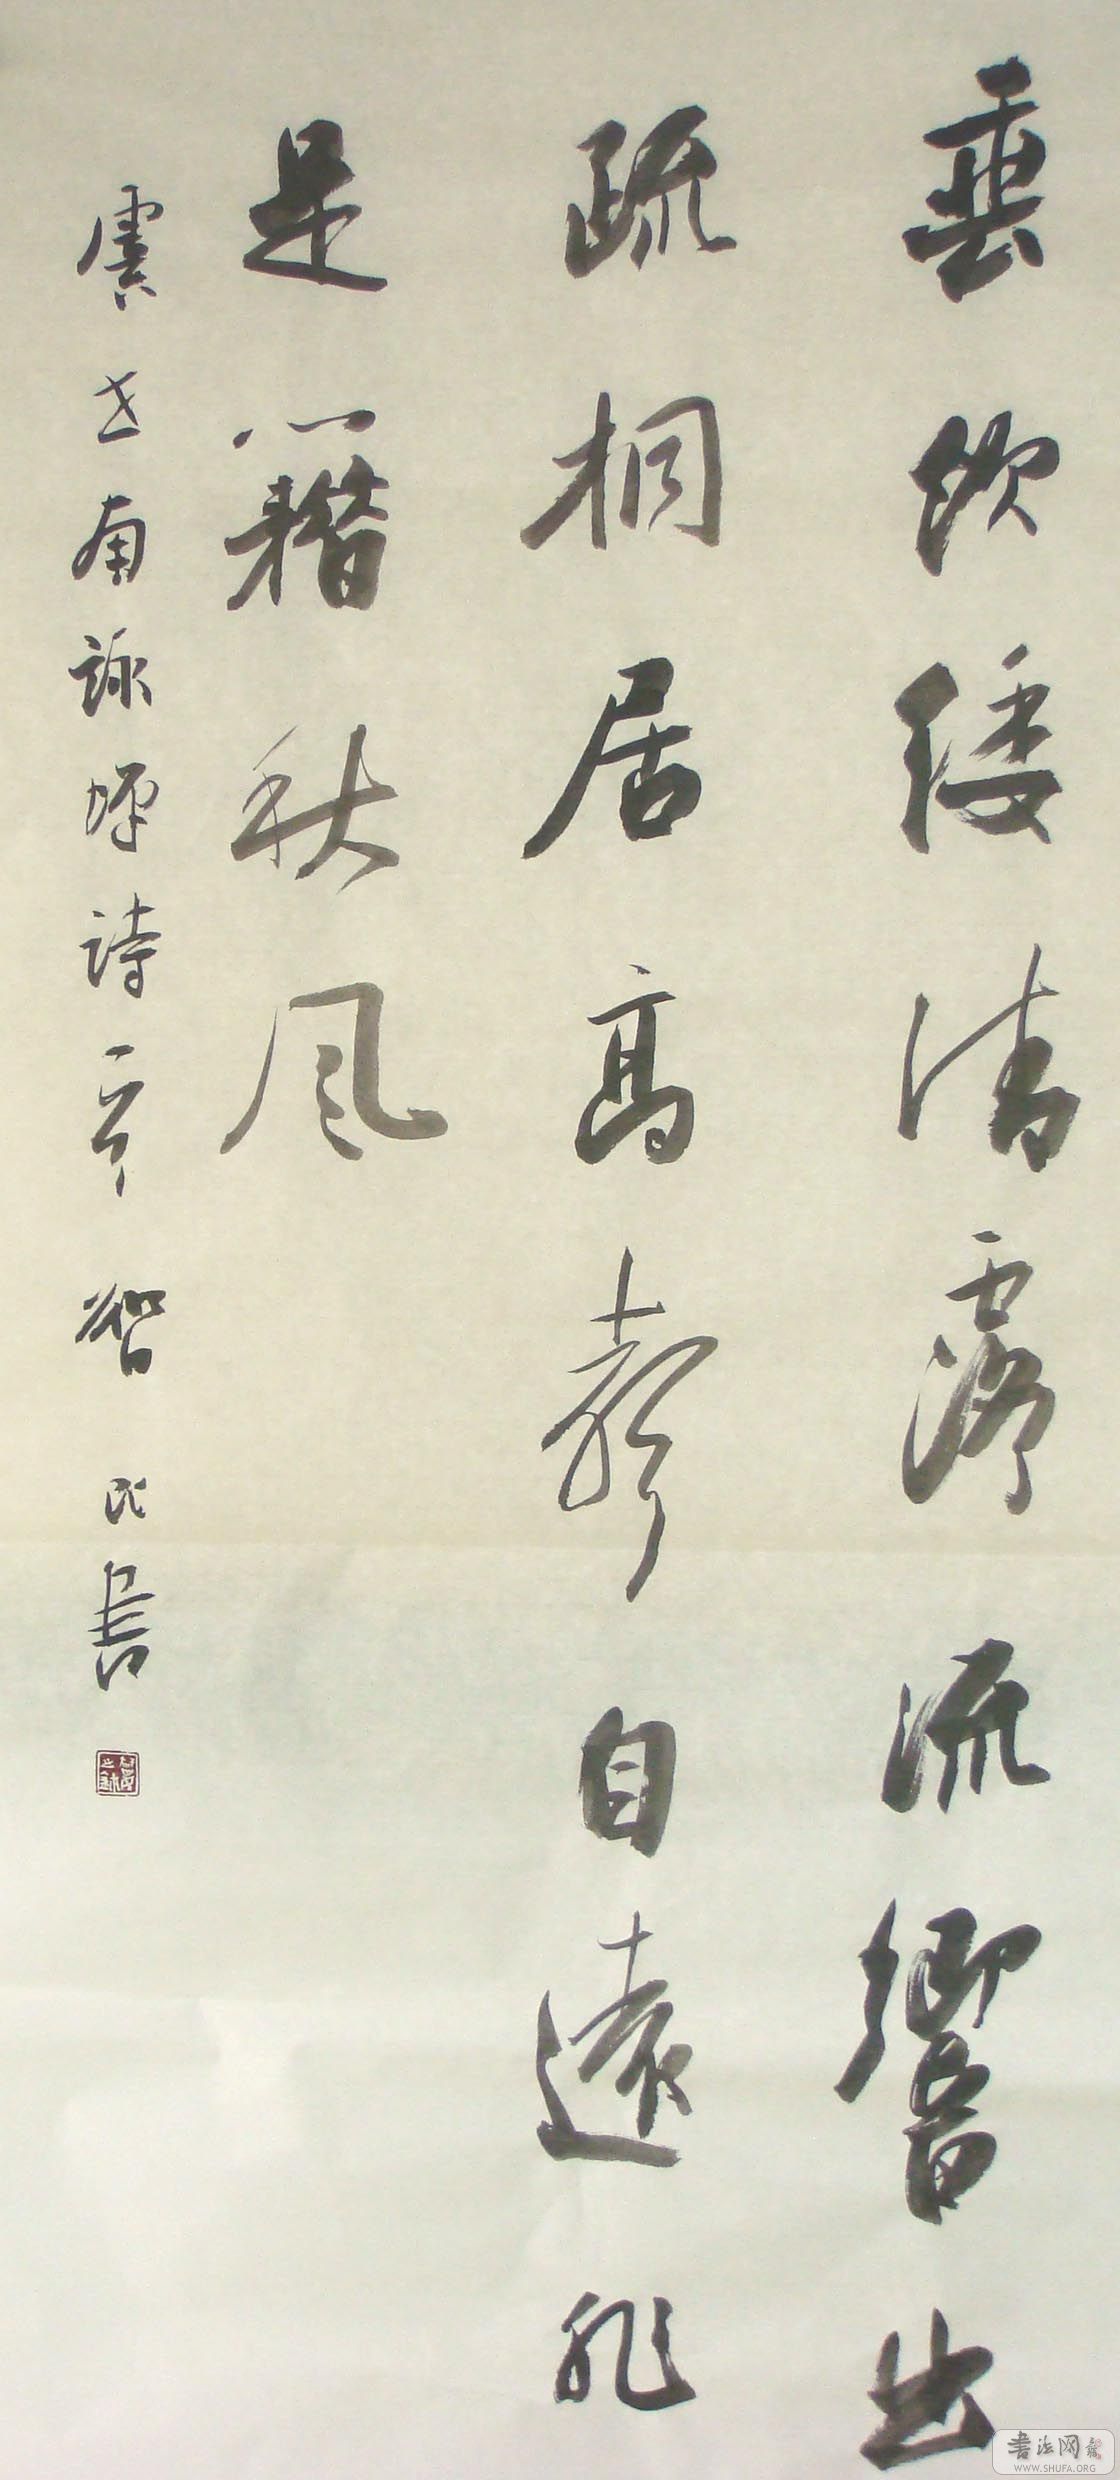 垂飲緌清露流響出
疏桐居高聲自遠非
是藉秋風
虞世南詠蟬詩一章 智民書
書法网
WWW.SHUFA.ORG